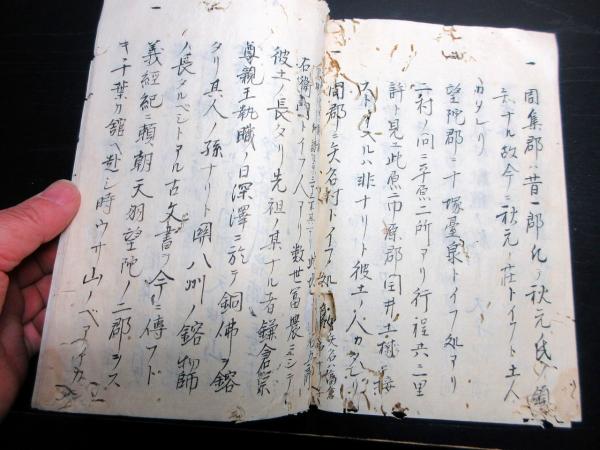 一 周集郡ハ昔一郡化ノ秋元氏ノ領
セナル故今ニ秋元ノ荘トイフト土人
カタレリ
望陀郡ニ十塚臺泉トイフ処アリ
二村ノ間ニ平原二所アリ行程共ニ二里
許ト見ユ此原市原郡臼井土 接
ストイヘルハ非ナリト彼土ノ人カタレリ
一 同郡ニ矢名村トイフ処
石衛門トイフ人アリ数世冨農ニシテ
彼土ノ長タリ先祖ノ某ナル者鎌倉宗
尊親王執職ノ日深澤ニ於テ銅佛ヲ鎔
タリ其人ノ孫ナリト関八州ノ鎔物師
ノ長タルベシトアル古文書ヲ今ニ傳フト
義經紀ニ頼朝天羽望陀ノ二郡ヲス
キ千葉カ舘ヘ赴シ時ウサ山ノベ